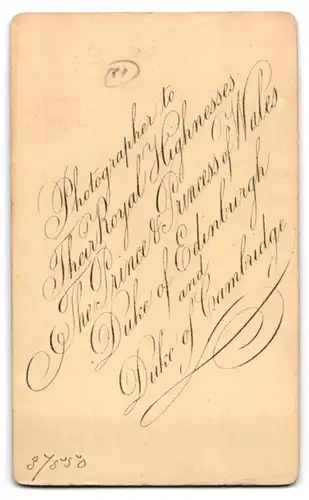 Photographer to
Their Royal Highnesses
The Prince & Princess of Wales
Duke of Edinburgh
and
Duke of Cambridge